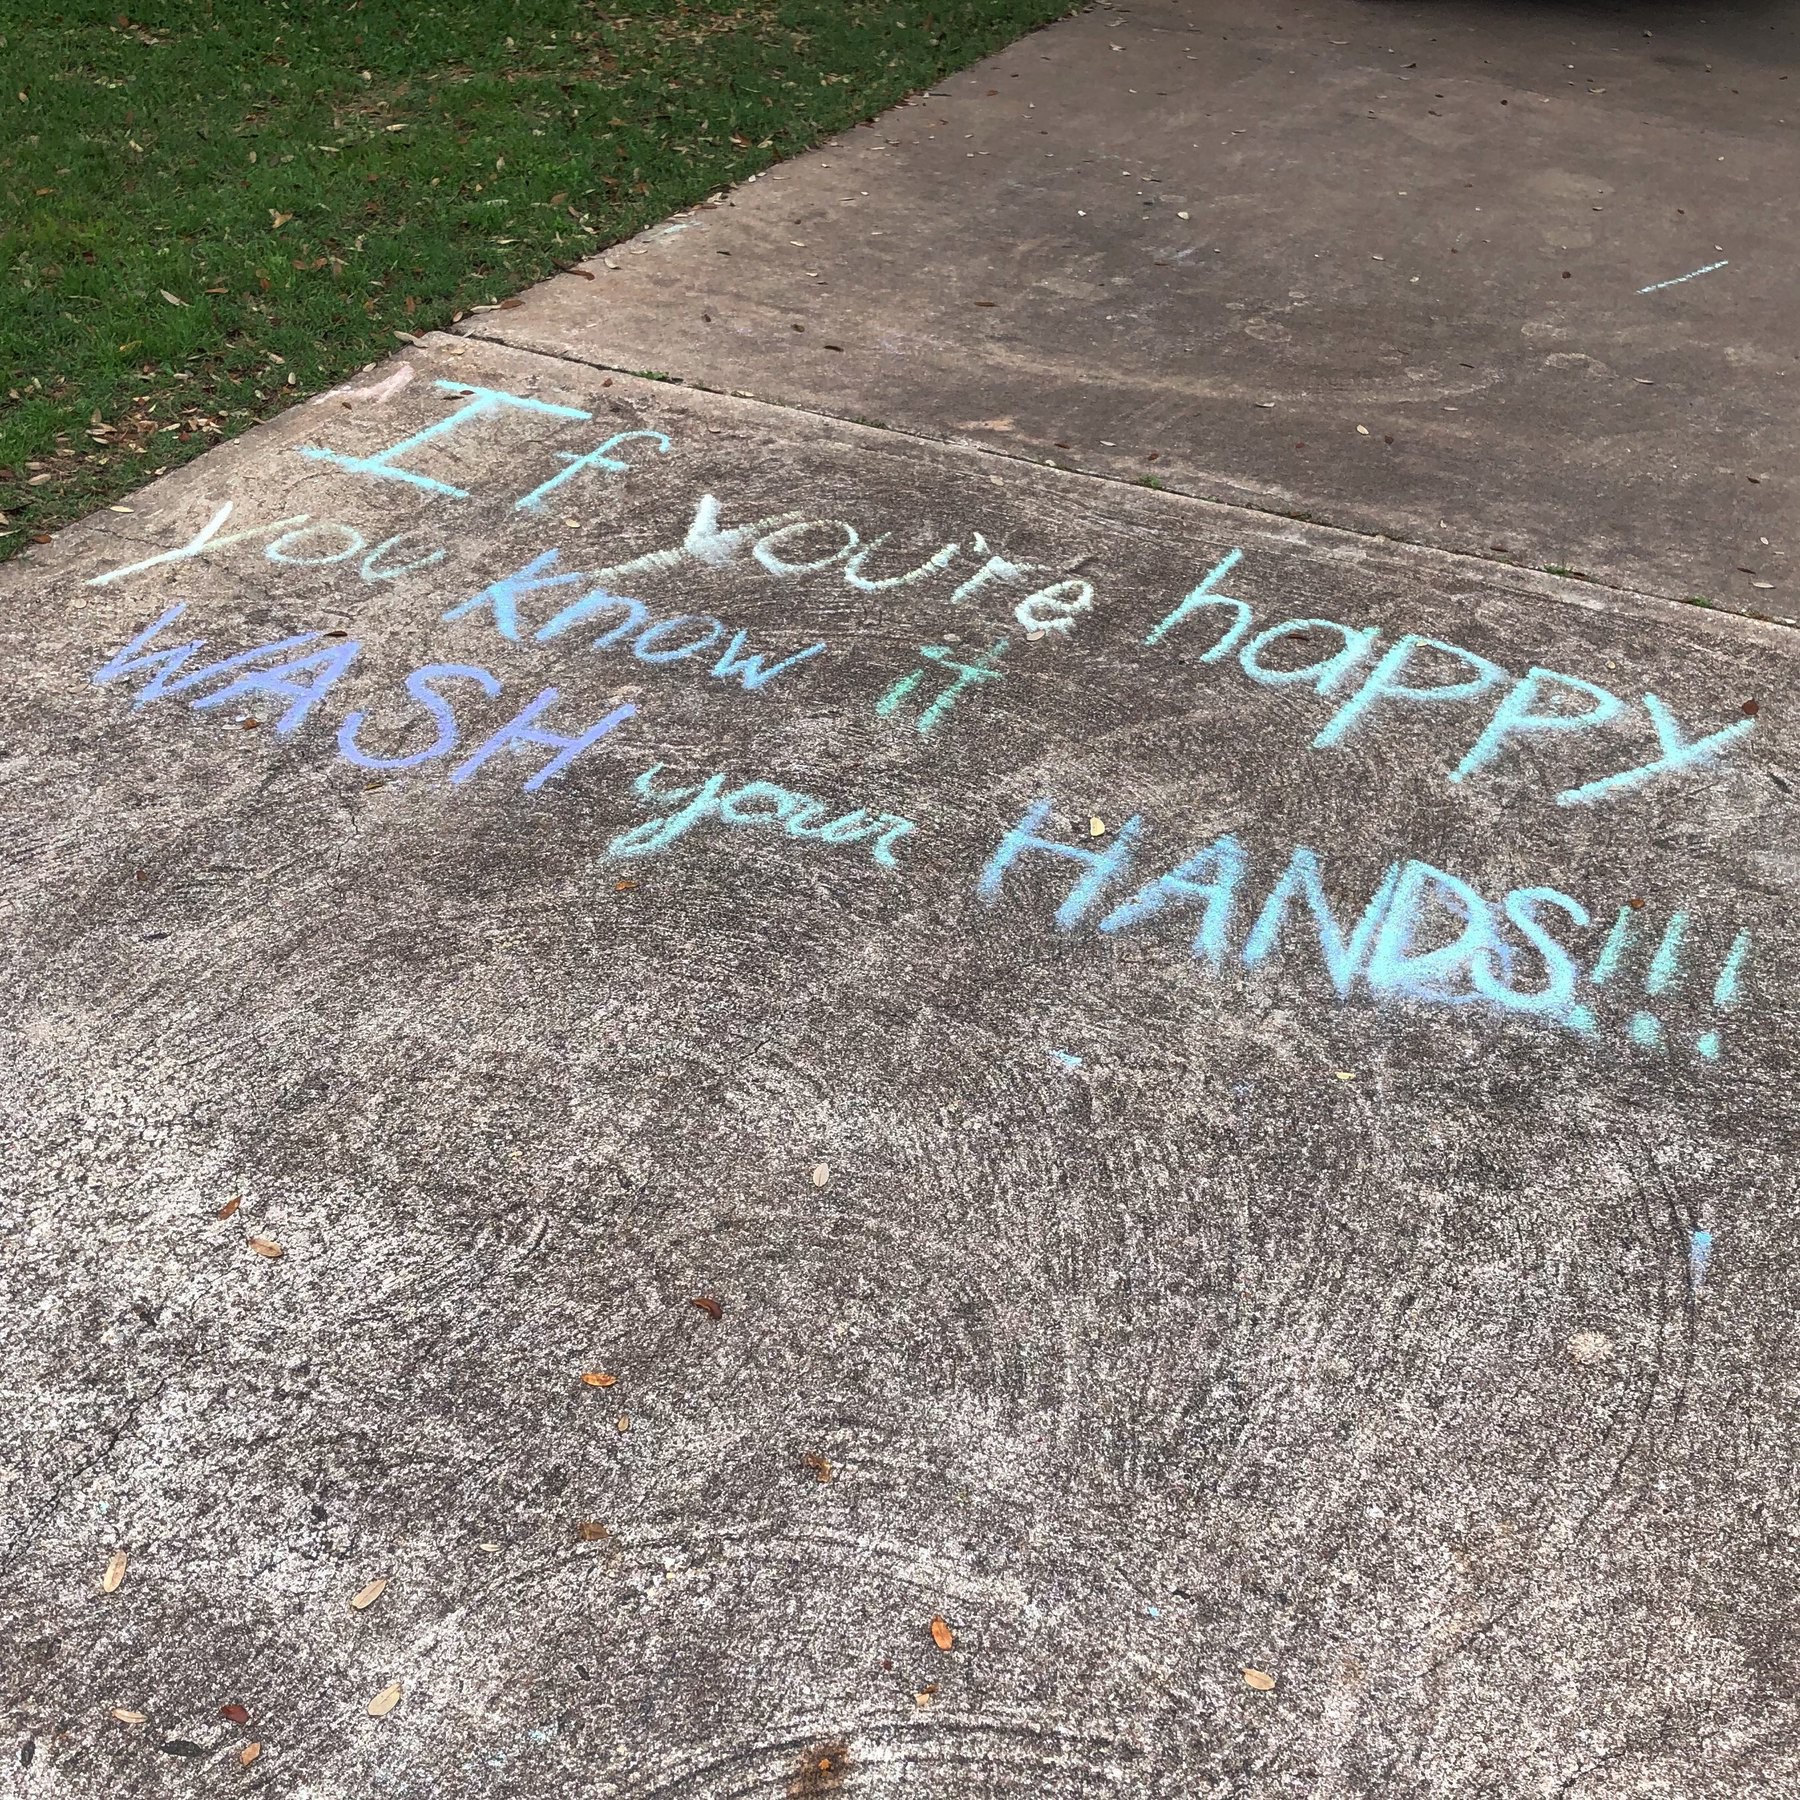 If you're happy
you know it
WASH your HANDS!!!